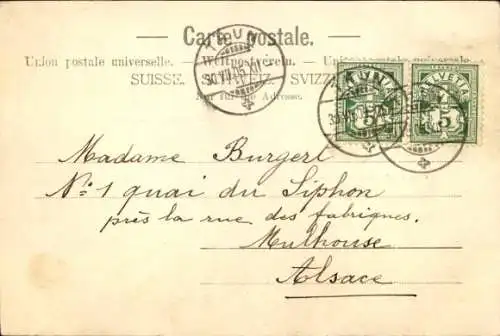 Carte postale.
Union postale universelle. — Weltpostverein. — Unione postale universale.
SUISSE. SCHWEIZ. SVIZZERA.
Nur für die Adresse.
HELVETIA HELVETIA
5 5
Madame Burgert
No: 1 quai du Siphon
près la rue des fabriques.
Mulhouse
Alsace